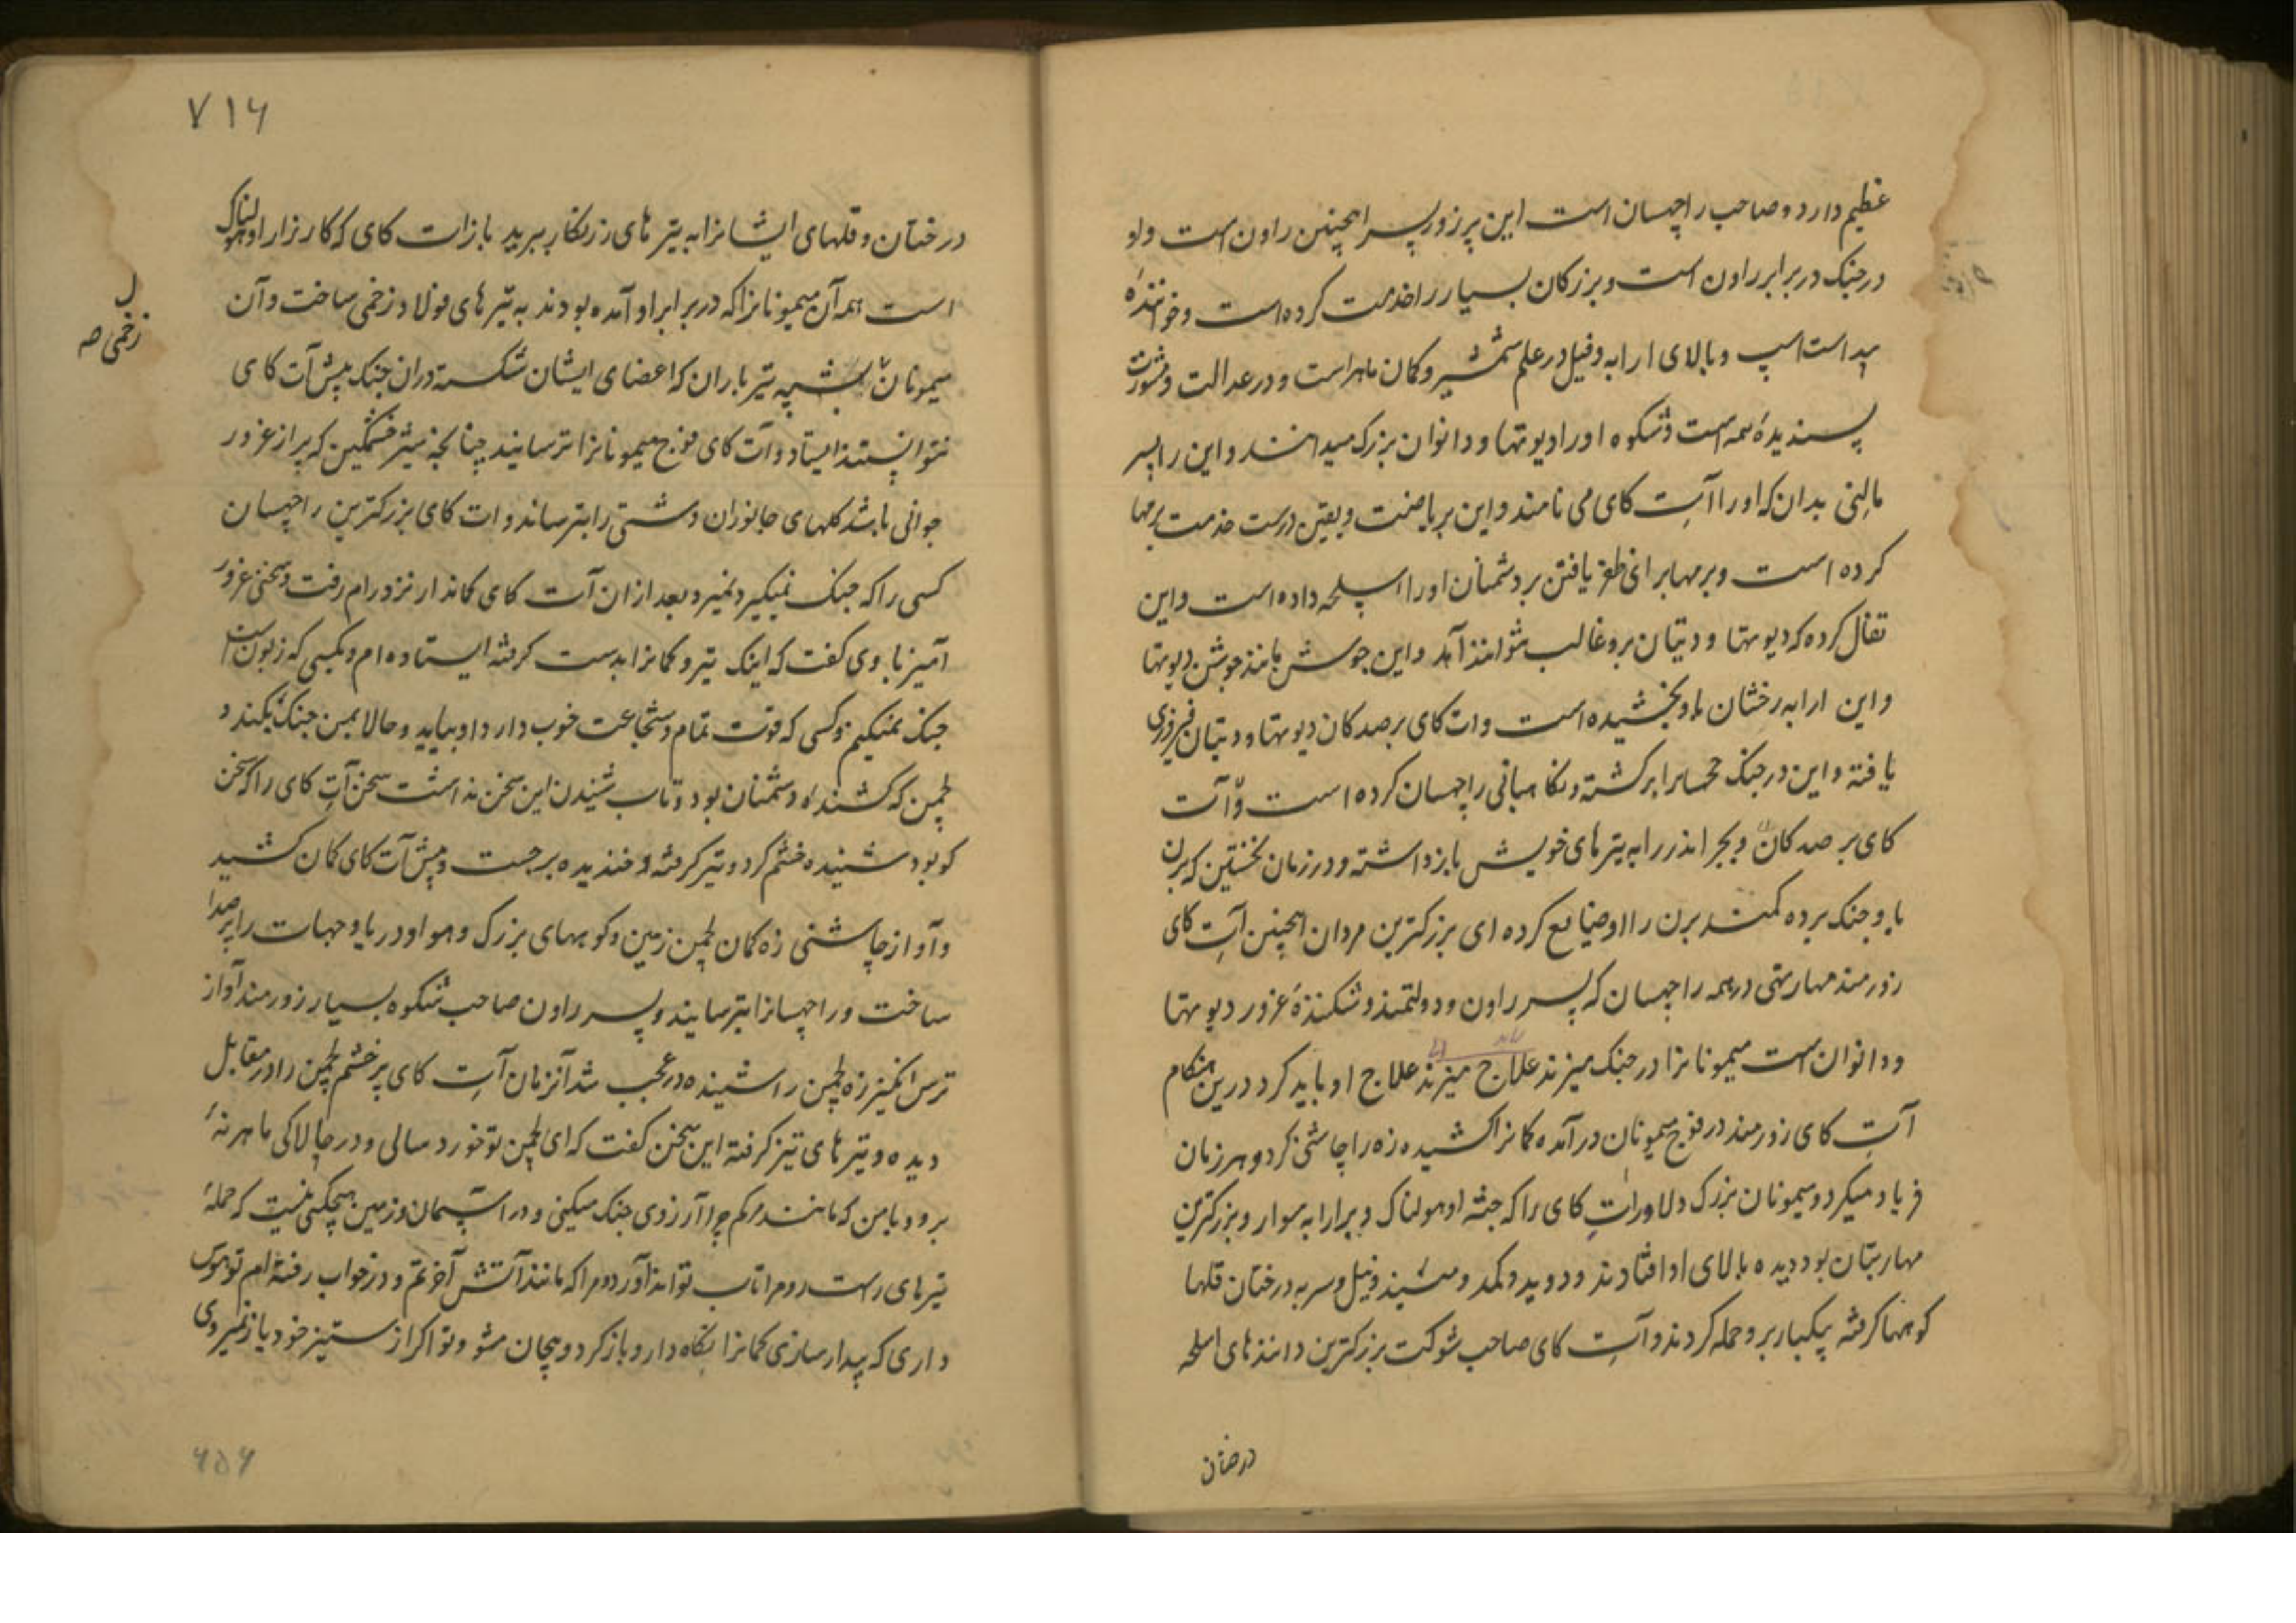 عظیم دارد و صاحب راچهسان است این پرزور پسر اهمچنین راون است و او
در جنک در برابر راون است و بزرکان بسیار را خدمت کرده است و خوانندهٔ
بید است اسپ و بالای ارابه و فیل در علم شمشیر و کمان ماهر است و در عدالت و مشورت
پسندیدهٔ همه است و شکوه او را دیوتها و دانوان بزرک میدانند و این را پسر
مالنی بدان که او را آت کای می نامند و این بریاضت و یقین درست خدمت برمها
کرده است و برمها برای ظفر یافتن بر دشمنان او را اسلحه داده است و این
تفال کرده که دیوتها و دیتان برو غالب نتوانند آمد و این جوشن مانند جوشن دیوتها
و این ارابه رخشان باو بخشیده است و ات کای بر صدکان دیوتها و دیتان فیروزی
یافته و این در جنک جمها را برکشته و نکاهبانی راچهسان کرده است و آت
کای بر صدکان و بجر اندر را به تیرهای خویش باز داشته و در زمان نخستین که برن
با و جنک برده کمند برن را او ضایع کرده ای بزرکترین مردان اهمچنین آت کای
زورمند مهارتهی در همه راچهسان که پسر راون و دولتمند و شکنندهٔ غرور دیوتها
و دانوان است میمونانرا در جنک میزند علاج میزند علاج او باید کرد درین هنکام
آت کای زورمند در فوج میمونان در آمده کمانرا کشیده زه را چاشنی کرد و هر زمان
فریاد میکرد و میمونان بزرک دلاور ات کای را که جثه او هولناک و بر ارابه سوار و بزرکترین
مهارتیان بود دیده بالای او افتادند و دوید و کمد و میند و نیل و سربه درختان قلها
کوهها کرفته یکبار برو حمله کردند و آت کای صاحب شوکت بزرکترین دانندهای اسلحه
درختان
۷۱۶
درختان و قلهای ایشانرا به تیرهای زرنکار ببرید باز ات کای که کارزار او هولناک
است همه آن میمونانرا که در برابر او آمده بودند به تیرهای فولاد زخمی ساخت و آن
میمونان بشبه تیر باران که اعضای ایشان شکسته دران جنک پیش آت کای
نتوانستند ایستاد و آت کای فوج میمونانرا ترسانید چنانچه شیر خشمکین که پر از غرور
جوانی باشد کلهای جانوران دشتی را بترساند و ات کای بزرکترین راچهسان
کسی را که جنک نمیکرد نمیزد و بعد ازان آت کای کماندار نزد رام رفت و سخن غرور
آمیز با وی کفت که اینک تیر و کمانرا بدست کرفته ایستاده ام و بکسی که زبون است
جنک نمیکنم و کسی که قوت تمام و شجاعت خوب دارد او بیاید و حالا بمن جنک بکند و
لچمن که کشندهٔ دشمنان بود و تاب شنیدن این سخن نداشت سخن آت کای را که سخن
کو بود شنیده خشم کرد و تیر کرفته و خندیده برجست و پیش آت کای کمان کشید
و آواز چاشنی زه کمان لچمن زمین و کوههای بزرک و هوا و دریا و جهات را پر صدا
ساخت و راچهسانرا بترسانید و پسر راون صاحب شکوه بسیار زورمند آواز
ترس انکیز زه لچمن را شنیده در عجب شد آنزمان آت کای پرخشم لچمن را در مقابل
دیده و تیرهای تیز کرفته این سخن کفت که ای لچمن تو خورد سالی و در چالاکی ماهر نهٔ
برو و با من که مانند مرکم چرا آرزوی جنک میکنی و در آسمان و زمین هیچکس نیست که حملهٔ
تیرهای راست رو مرا تاب تواند آورد و مرا که مانند آتش آخرتم و در خواب رفته ام تو هوس
داری که بیدار سازی کمانرا نکاه دار و باز کرد و بیجان مشو و تو اکر از ستیز خود باز نمیروی
زخمی صه
۶۵۶